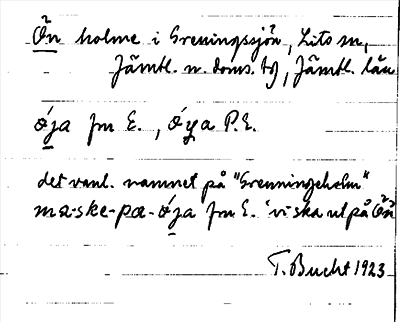 Ön holme i Greningssjön, Lits sn,
Jämtl. n. doms. tg, Jämtl. län
ǿja fm E., ǿya P.E.
det vanl. namnet på "Greningeholm"
ma-ske-pa-ǿja fm E. 'vi ska ut på Ön
T. Bucht 1923